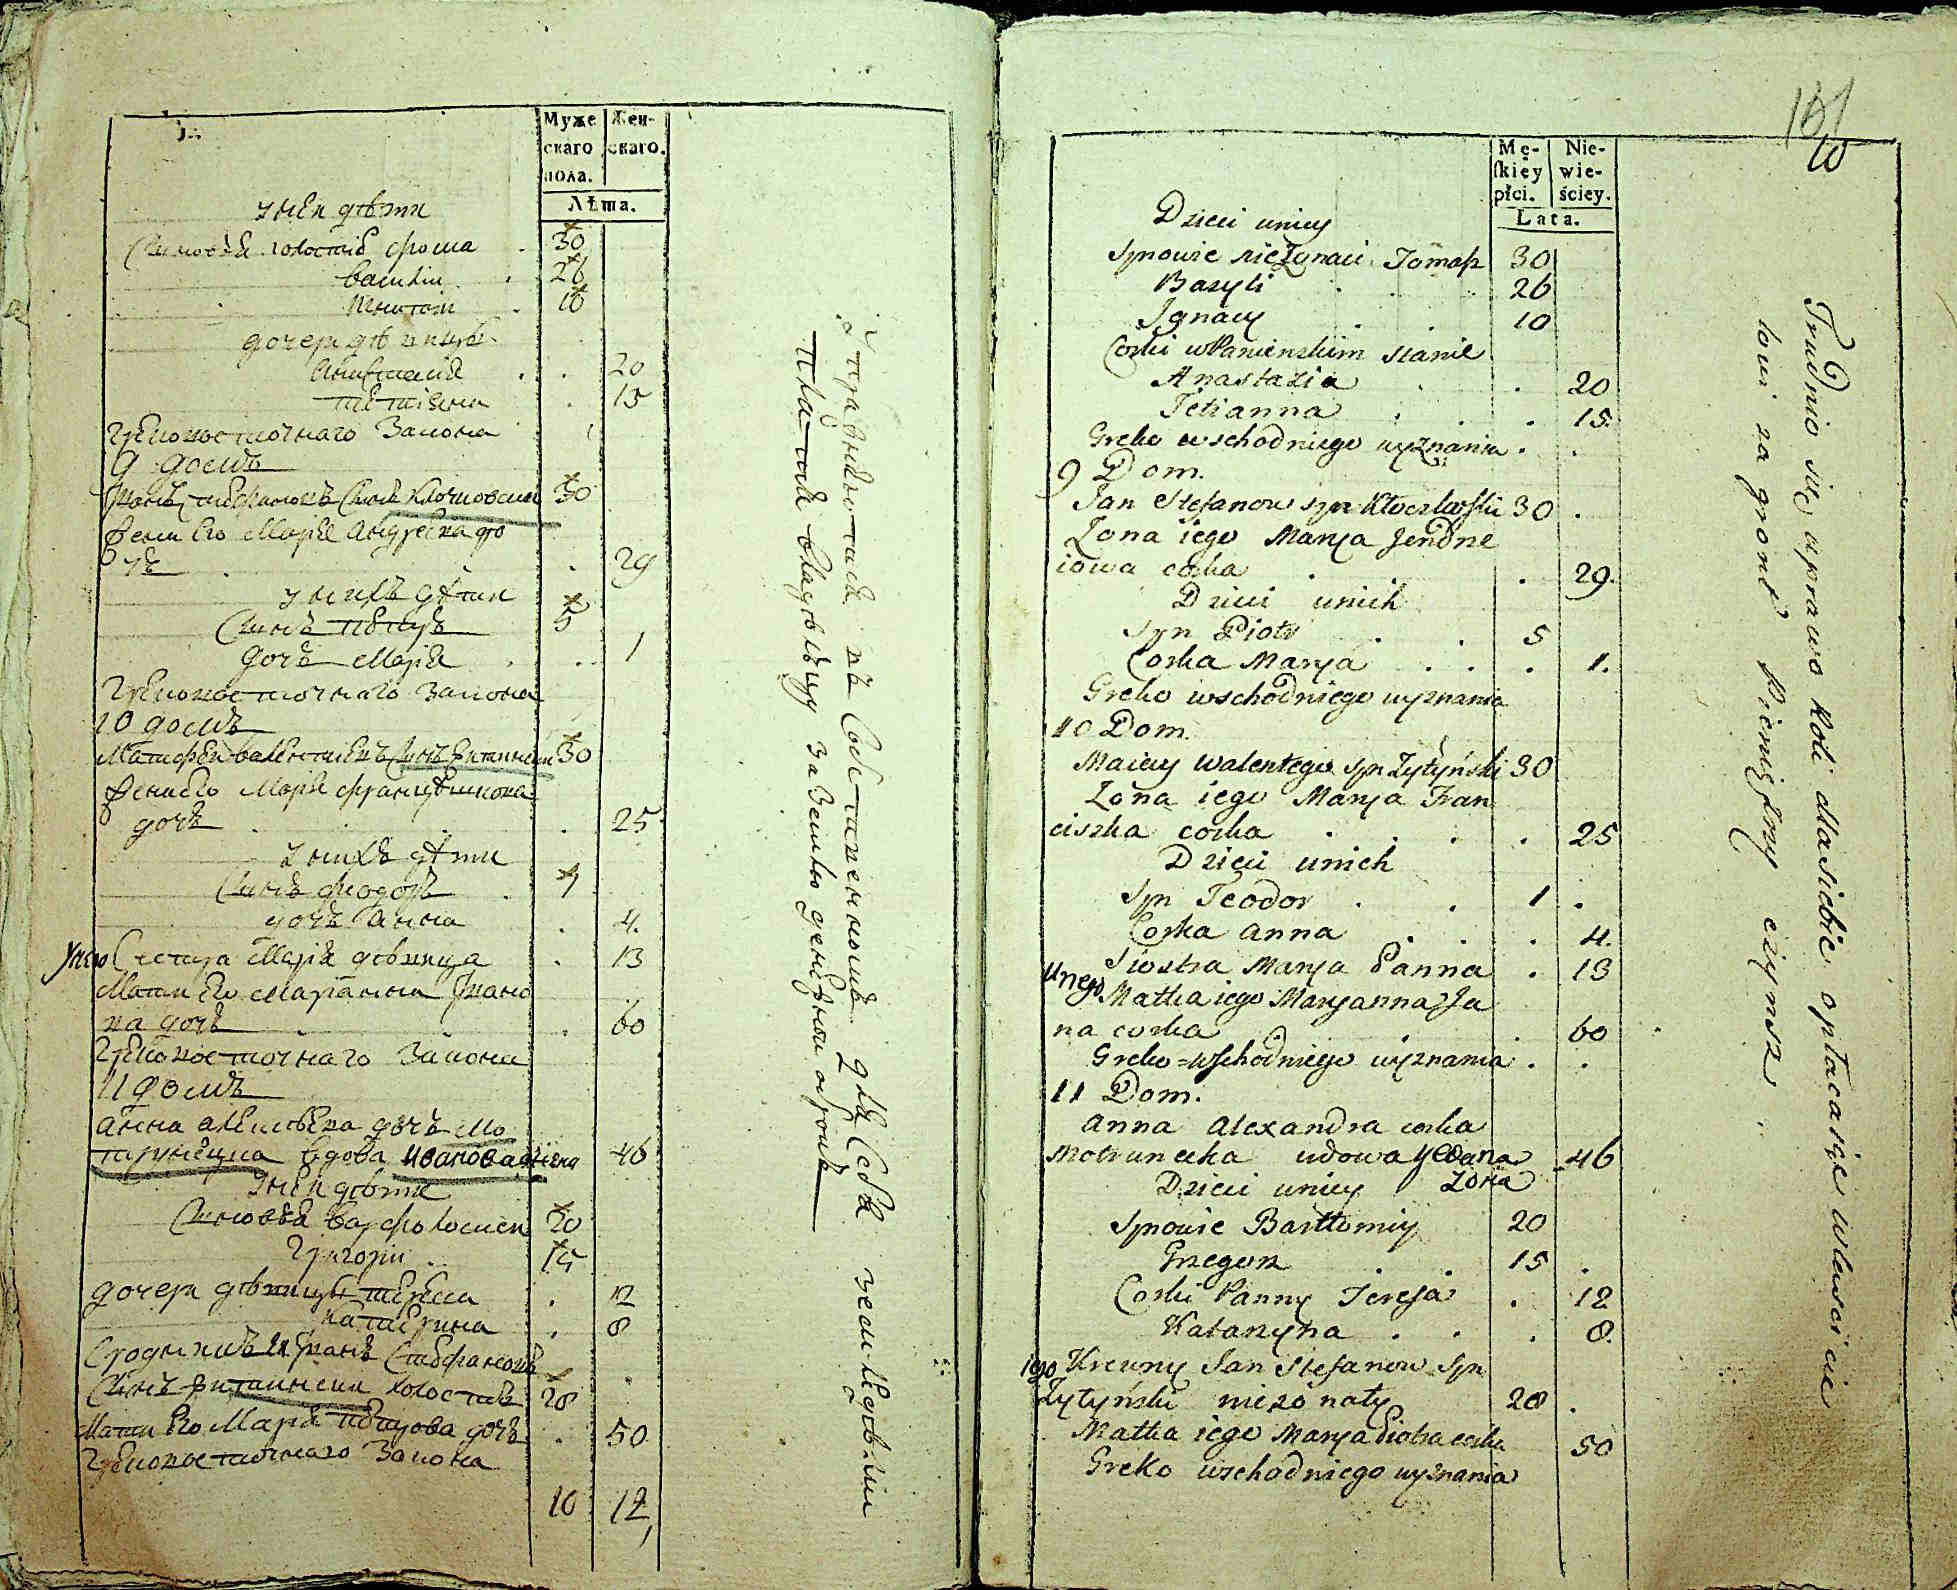 Муже
скаго
пола.
Жен-
скаго.
Лѣта.
у ней дѣти
Сыновья холостіе Фома 30
Василій 26
Игнатій 10
дочери дѣвицы
Анастасія 20
Татіяна 15
Грековосточнаго Закона
9 домъ
Иванъ Стефановъ Сынъ Клочковскій 30
Жена Его Марія Андреева до
чь 29
у нихъ дѣти
Сынъ Петръ 5
Дочь Марія 1
Грековосточнаго Закона
10 домъ
Матфей Валентіевъ Сынъ Житинскій 30
Жена Его Марія Францышкова
дочь 25
у нихъ дѣти
Сынъ Феодоръ 1
дочь Анна 4
у него Сестра Марія дѣвица 13
Мати Его Маріанна Ивано
ва дочь 60
Грековосточнаго Закона
11 домъ
Анна Алексѣева дочь Мо
трунецка Вдова Иванова жена 46
у ней дѣти
Сыновья Варфоломей 20
Григорій 15
дочери дѣвицы Тереса 12
Катерина 8
Сродникъ Иванъ Стефановъ
Сынъ Житинскій холостій 28
Мати Его Марія Петрова дочь 50
Грековосточнаго Закона
10 12
Упражняются въ Собственномъ для Себя земледѣліи
платятъ владѣльцу за землю денежной оброкъ
151
10
Mę-
skiey
płci.
Nie-
wie-
ściey.
Lata.
Dzieci u niey
Synowie nieżonaci Tomasz 30
Bazyli 26
Ignacy 10
Corki w Panienskim stanie
Anastazia 20
Tetianna 15.
Greko wschodniego wyznania
9 Dom.
Jan Stefanow syn Kłoczkowski 30
Zona iego Marya Jendrze
iowa corka 29.
Dzieci u nich
Syn Piotr 5
Corka Marya 1.
Greko wschodniego wyznania
10 Dom.
Maciey Walentego syn Zytyński 30
Zona iego Marya Fran
ciszka corka 25
Dzieci u nich
Syn Teodor 1
Corka Anna 4.
u nego Siostra Marya Panna 13
Matka iego Maryanna Ja
na corka 60
Greko=wschodniego wyznania
11 Dom.
Anna Alexandra corka
Motrunecka wdowa Jwana 46
żona
Dzieci u niey
Synowie Bartłomiy 20
Grzegorz 15
Corki Panny Teresa 12
Katarzyna 8.
igo Krewny Jan Stefanow Syn
Zytyński nieżonaty 28
Matka iego Marya Piotra corka 50
Greko wschodniego wyznania
Trudnio się uprawo roli dla siebie, opłacaiąc właścicie
lowi za grónt Pieniężny czynsz